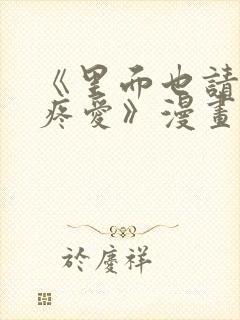 《里而也請
疼愛》漫畫
於慶祥